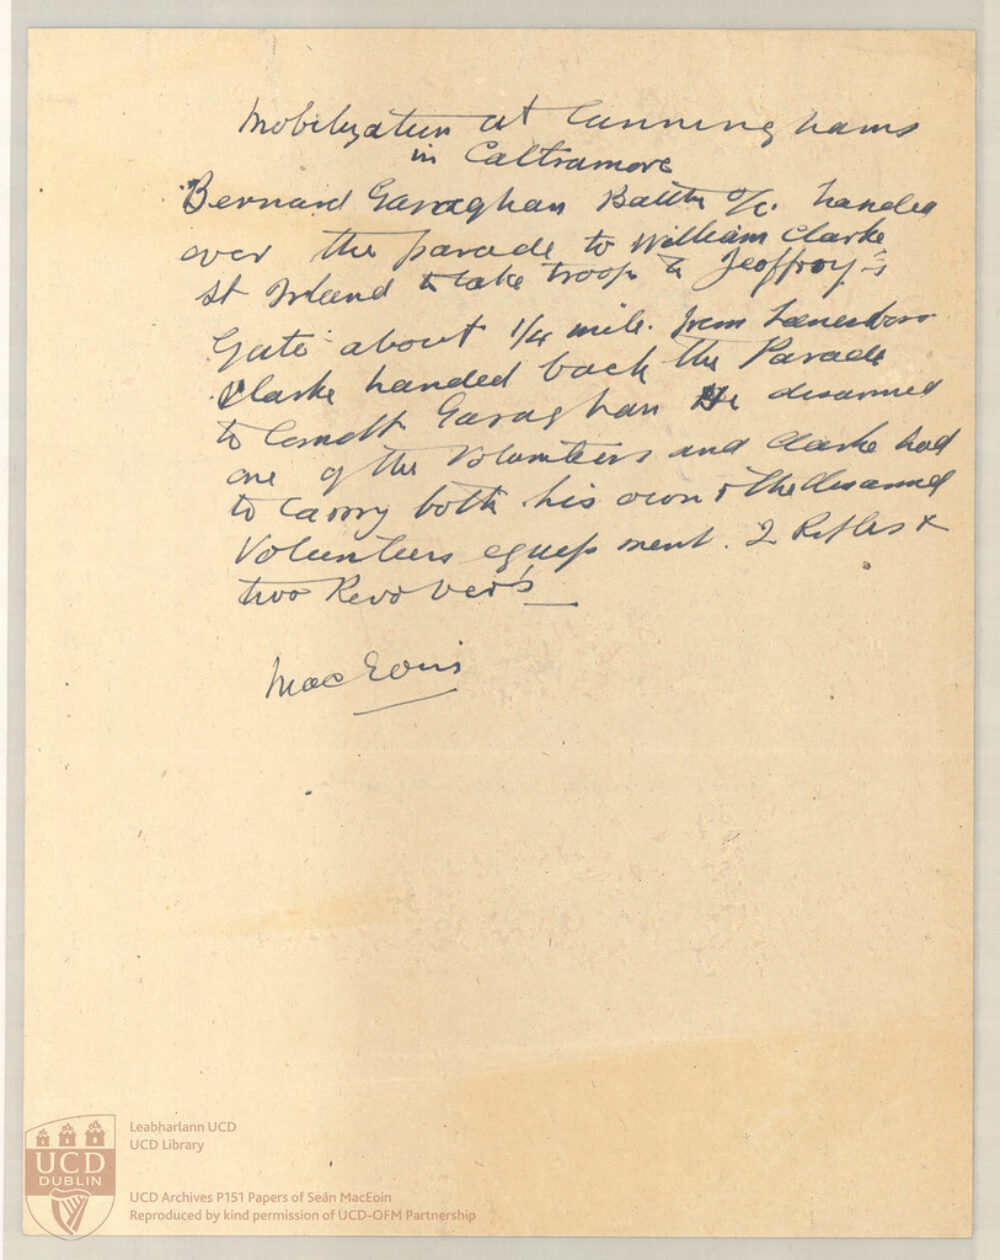 Mobilyzation at Cunninghams
in Caltramore
Bernard Garaghan Battn O/C. handed
over the parade to William Clarke
St Island to take troop to Jeoffroy's
Gate about 1/4 mile. from Lanesboro
Clarke handed back the Parade
to Comdt Garaghan He disarmed
one of the Volunteers and Clarke had
to carry both his own & the disarmed
Volunteers equipment. 2 Rifles &
two Revolver's
MacEoin
Leabharlann UCD
UCD Library
UCD
DUBLIN
UCD Archives P151 Papers of Seán MacEoin
Reproduced by kind permission of UCD-OFM Partnership